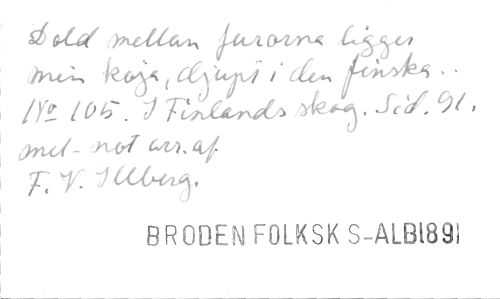 Dold mellan furorna ligger
min koja, djupt i den finska..
No 105. I Finlands skog. Sid. 91.
mel-not arr. af
F. V. Illberg.
BRODEN FOLKSK S-ALB1891